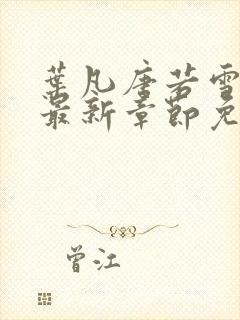 葉凡唐若雪
最新章節免
曾江